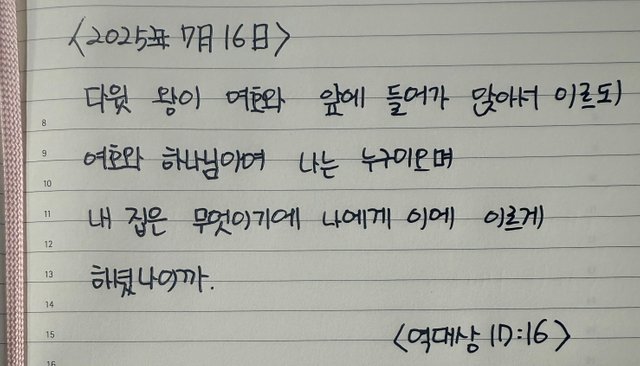 <2025年 7月 16日>
다윗 왕이 여호와 앞에 들어가 앉아서 이르되
8
여호와 하나님이여 나는 누구이오며
9
10
내 집은 무엇이기에 나에게 이에 이르게
11
12
하셨나이까.
13
14
<역대상 17:16>
15
16